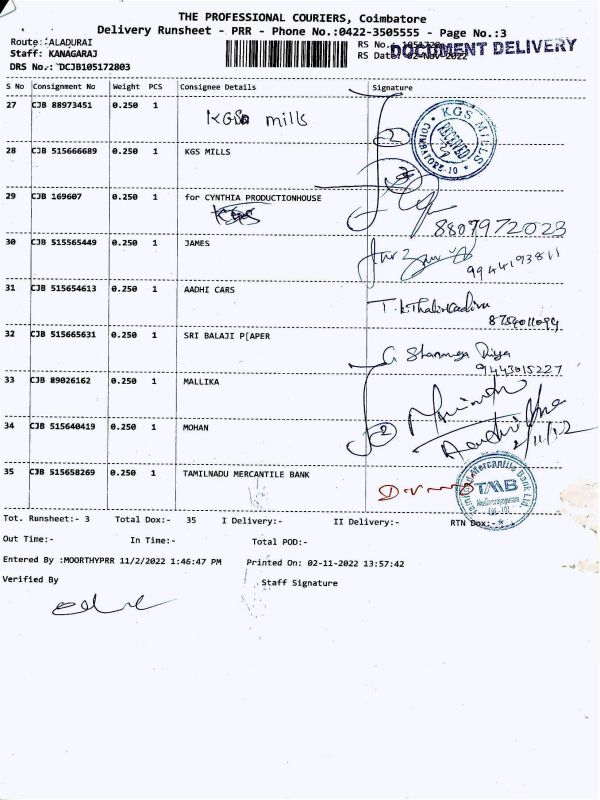 THE PROFESSIONAL COURIERS, Coimbatore
Delivery Runsheet - PRR - Phone No.:0422-3505555 - Page No.:3
Route:ALADURAI RS No.: 1051728
Staff: KANAGARAJ RS Date: 02-Nov-2022
DOCUMENT DELIVERY
DRS No.: DCJB105172803
S No Consignment No Weight PCS Consignee Details Signature
27 CJB 88973451 0.250 1 KGS mills
2
KGS MILLS RECEIVED COIMBATORE-10
28 CJB 515666689 0.250 1 KGS MILLS
29 CJB 169607 0.250 1 for CYNTHIA PRODUCTIONHOUSE
8807972023
30 CJB 515565449 0.250 1 JAMES
9944193811
31 CJB 515654613 0.250 1 AADHI CARS
8754011094
32 CJB 515665631 0.250 1 SRI BALAJI P[APER
G Shanmuga Priya
9443015227
33 CJB 89026162 0.250 1 MALLIKA
34 CJB 515640419 0.250 1 MOHAN
2
2/11/22
35 CJB 515658269 0.250 1 TAMILNADU MERCANTILE BANK
Tamilnad Mercantile Bank Ltd. TMB
Tot. Runsheet:- 3 Total Dox:- 35 I Delivery:- II Delivery:- RTN Dox:-
Out Time:- In Time:- Total POD:-
Entered By :MOORTHYPRR 11/2/2022 1:46:47 PM Printed On: 02-11-2022 13:57:42
Verified By Staff Signature